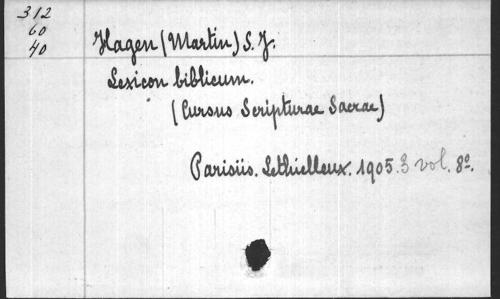 312
60
40
Hagen (Martin) S. J.
Lexicon biblicum.
(Cursus Scripturae Sacrae)
Parisiis. Lethielleux. 1905. 3 vol. 8º.